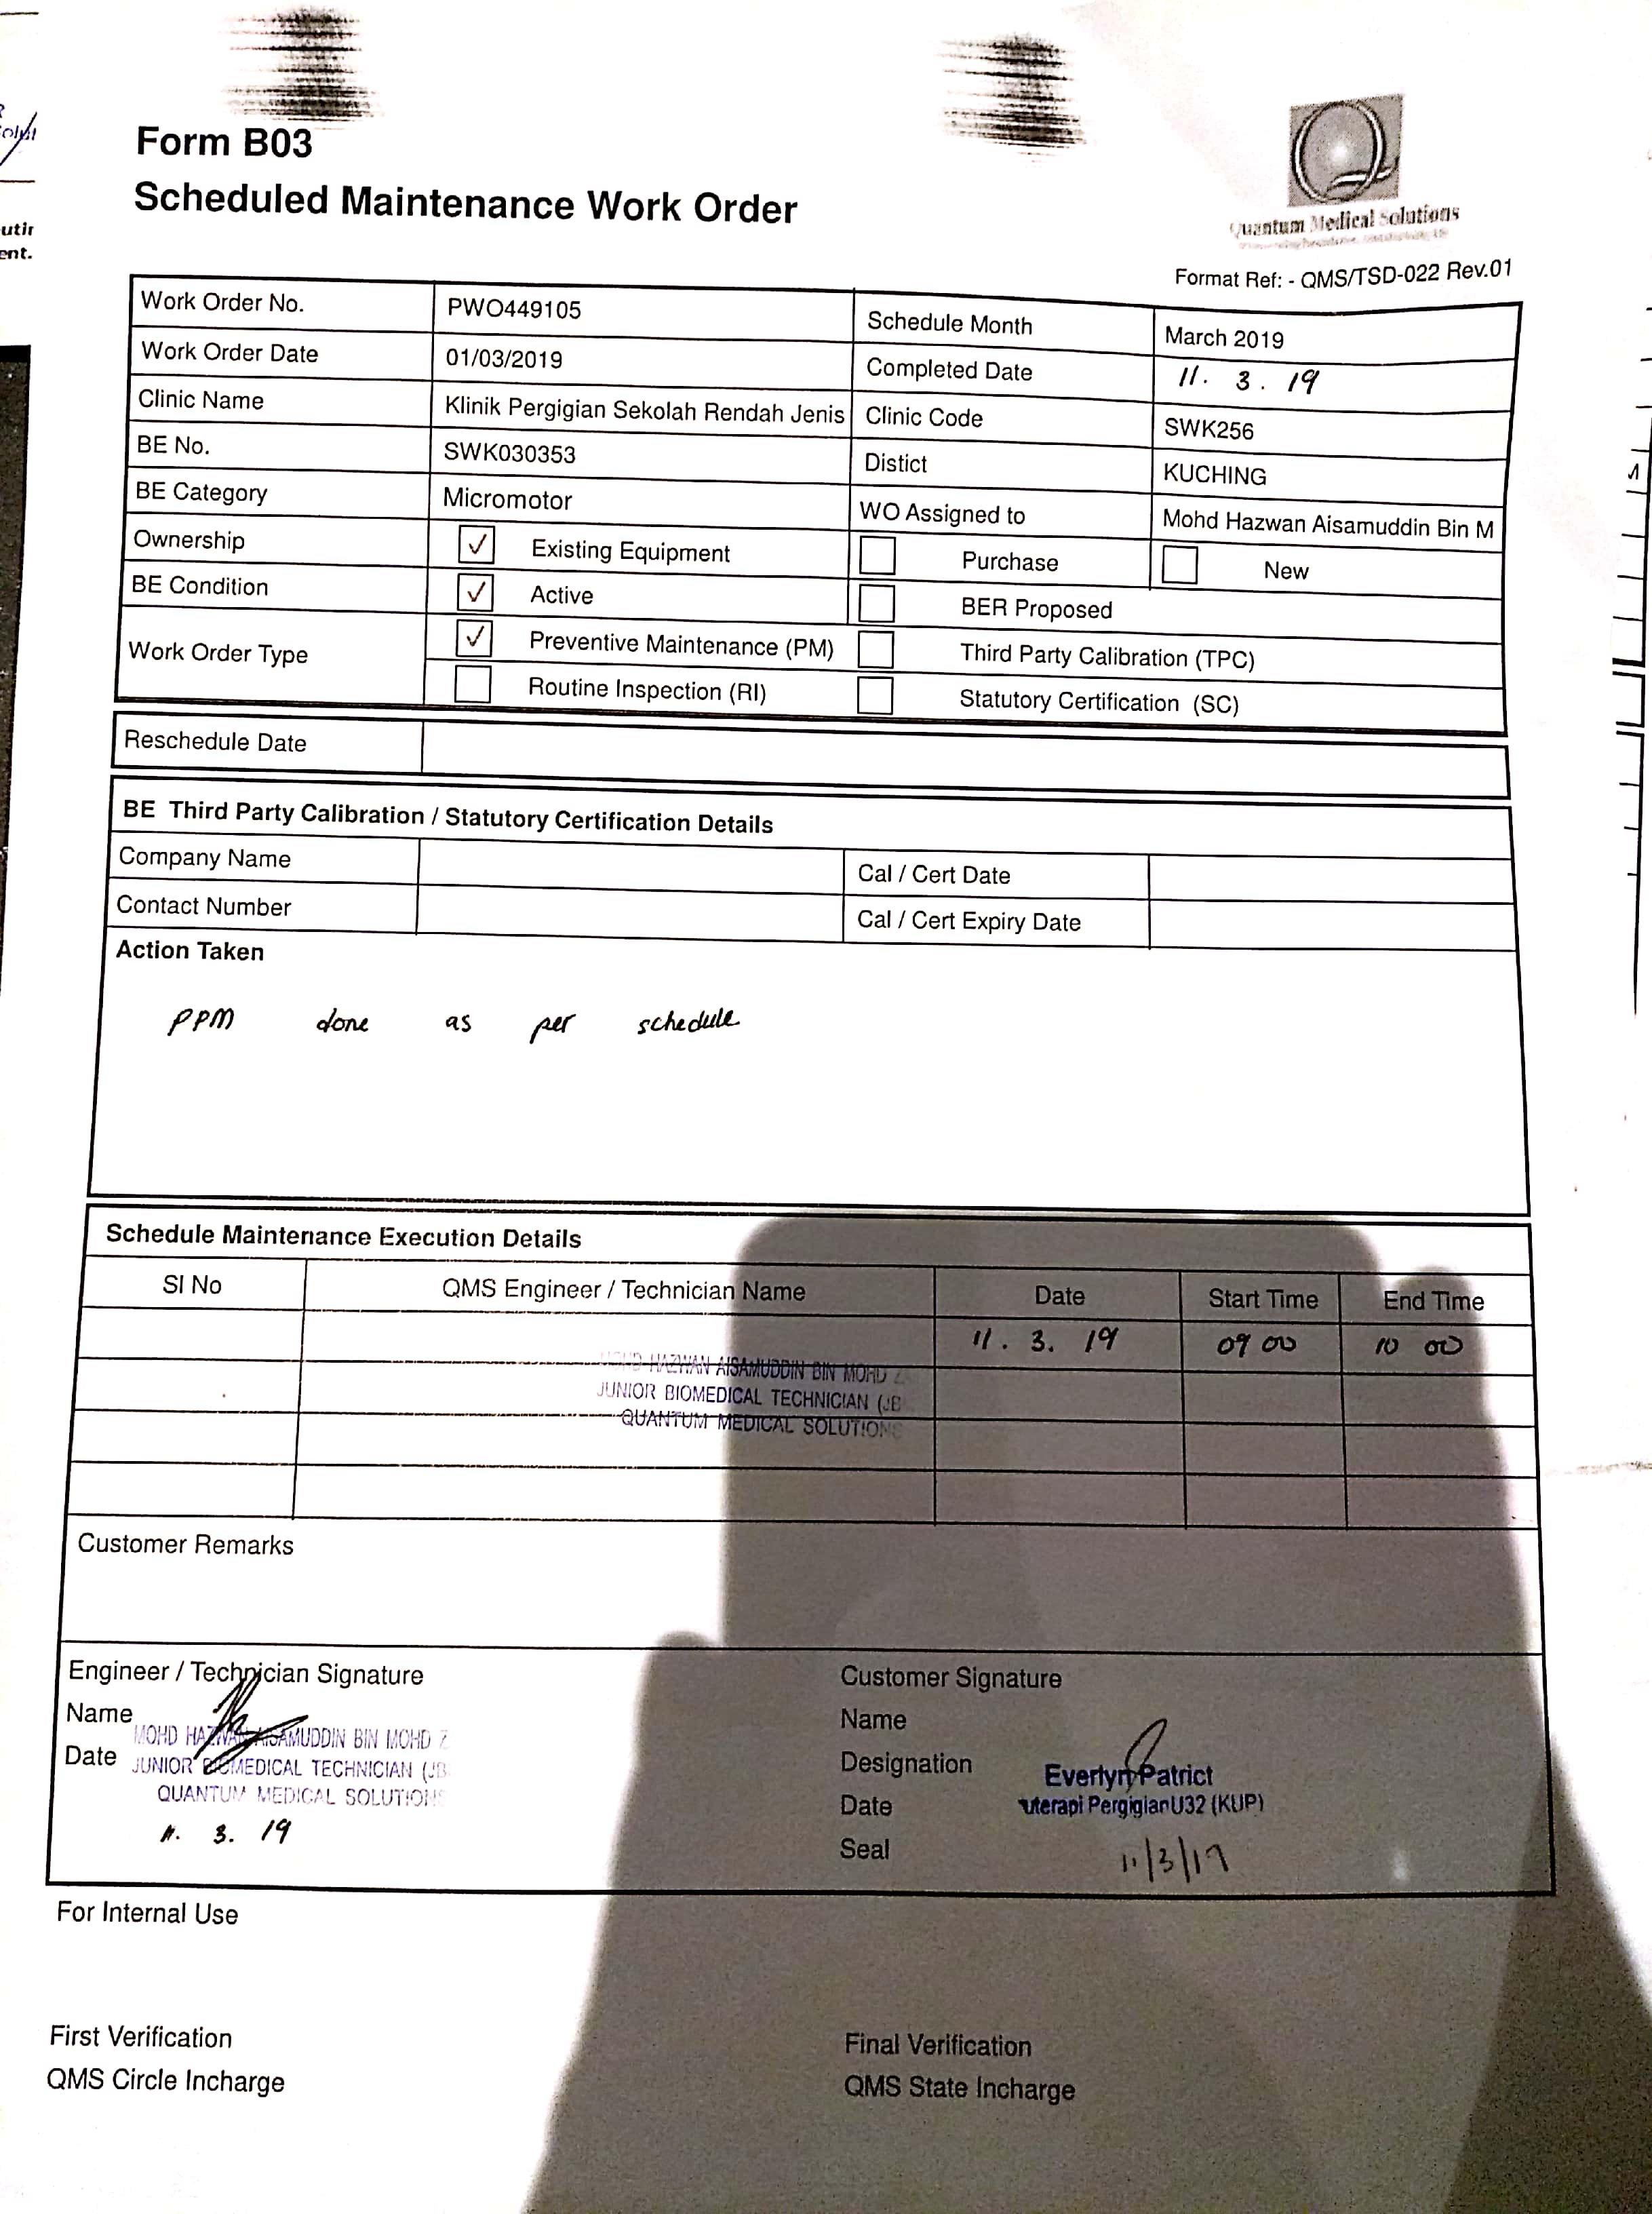 Form B03
Scheduled Maintenance Work Order
Quantum Medical Solutions
Format Ref: - QMS/TSD-022 Rev.01
Work Order No. PWO449105 Schedule Month March 2019
Work Order Date 01/03/2019 Completed Date 11. 3. 19
Clinic Name Klinik Pergigian Sekolah Rendah Jenis Clinic Code SWK256
BE No. SWK030353 Distict KUCHING
BE Category Micromotor WO Assigned to Mohd Hazwan Aisamuddin Bin M
Ownership ✓ Existing Equipment Purchase New
BE Condition ✓ Active BER Proposed
Work Order Type ✓ Preventive Maintenance (PM) Third Party Calibration (TPC)
Routine Inspection (RI) Statutory Certification (SC)
Reschedule Date
BE Third Party Calibration / Statutory Certification Details
Company Name Cal / Cert Date
Contact Number Cal / Cert Expiry Date
Action Taken
PPM done as per schedule
Schedule Maintenance Execution Details
SI No QMS Engineer / Technician Name Date Start Time End Time
11. 3. 19 09 00 10 00
MOHD HAZWAN AISAMUDDIN BIN MOHD Z
JUNIOR BIOMEDICAL TECHNICIAN (JB
QUANTUM MEDICAL SOLUTIONS
Customer Remarks
Engineer / Technician Signature
Name
MOHD HAZWAN AISAMUDDIN BIN MOHD Z
Date JUNIOR BIOMEDICAL TECHNICIAN (JB
QUANTUM MEDICAL SOLUTIONS
11. 3. 19
Customer Signature
Name
Designation Everlyn Patrict
Date uterapi Pergigian U32 (KUP)
Seal 11/3/19
For Internal Use
First Verification Final Verification
QMS Circle Incharge QMS State Incharge
utir
ent.